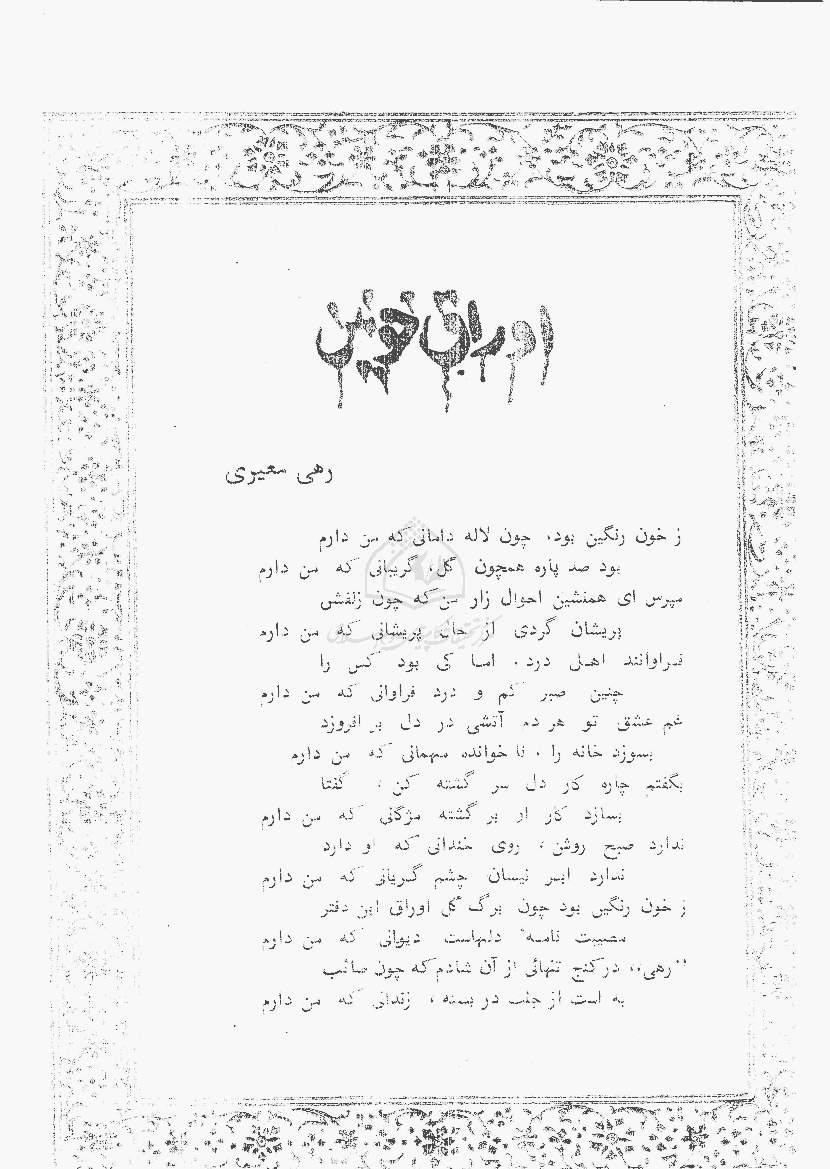 اوراق خونین
رهی معیری
ز خون رنگین بود، چون لاله دامانی که من دارم
بود صد پاره همچون گل، گریبانی که من دارم
مپرس ای همنشین احوال زار من که چون زلفش
پریشان گردی از حال پریشانی که من دارم
فراوانند اهل درد، اما کی بود کس را
چنین صبر کم و درد فراوانی که من دارم
غم عشق تو هر دم آتشی در دل بر افروزد
بسوزد خانه را، نا خوانده مهمانی که من دارم
بگفتم چاره کار دل سر گشته کن، گفتا
بسازد کار او بر گشته مژگانی که من دارم
ندارد صبح روشن، روی خندانی که او دارد
ندارد ابر نیسان چشم گریانی که من دارم
ز خون رنگین بود چون برگ گل اوراق این دفتر
مصیبت نامه دلهاست دیوانی که من دارم
"رهی،، در کنج تنهائی از آن شادم که چون صائب
به است از جنت در بسته، زندانی که من دارم